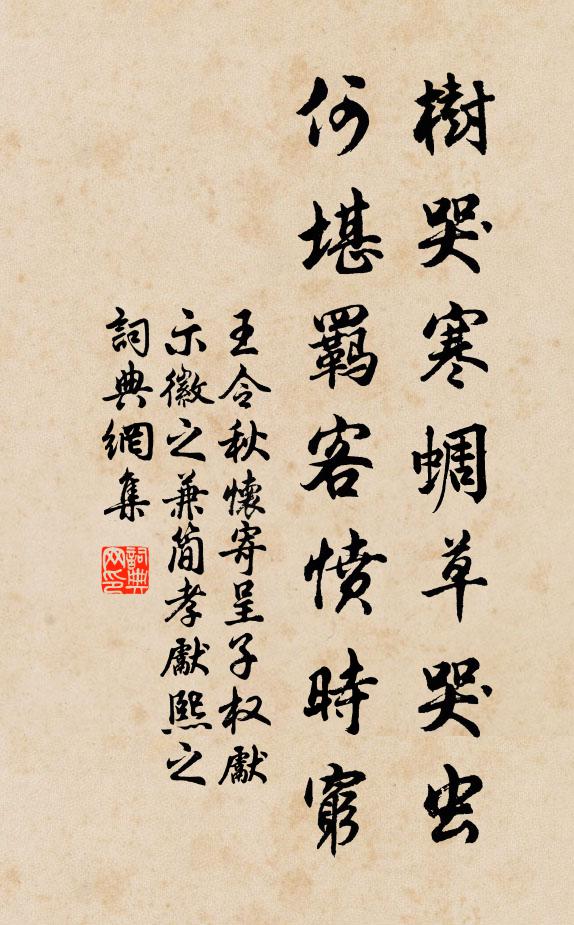 樹哭寒蜩草哭虫
何堪羈客憤時窮
王令秋懷寄呈子权獻
示徽之兼简孝獻熙之
詞典網集
詞典网印